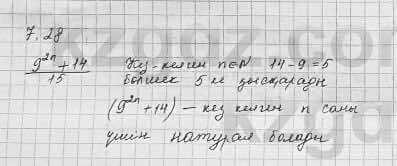 7.28
9²ⁿ + 14 / 15 Кез-келген n∈N 14-9=5
бөлшек 5 ке қысқарады
(9²ⁿ+14) — кез келген n саны
үшін натурал болады